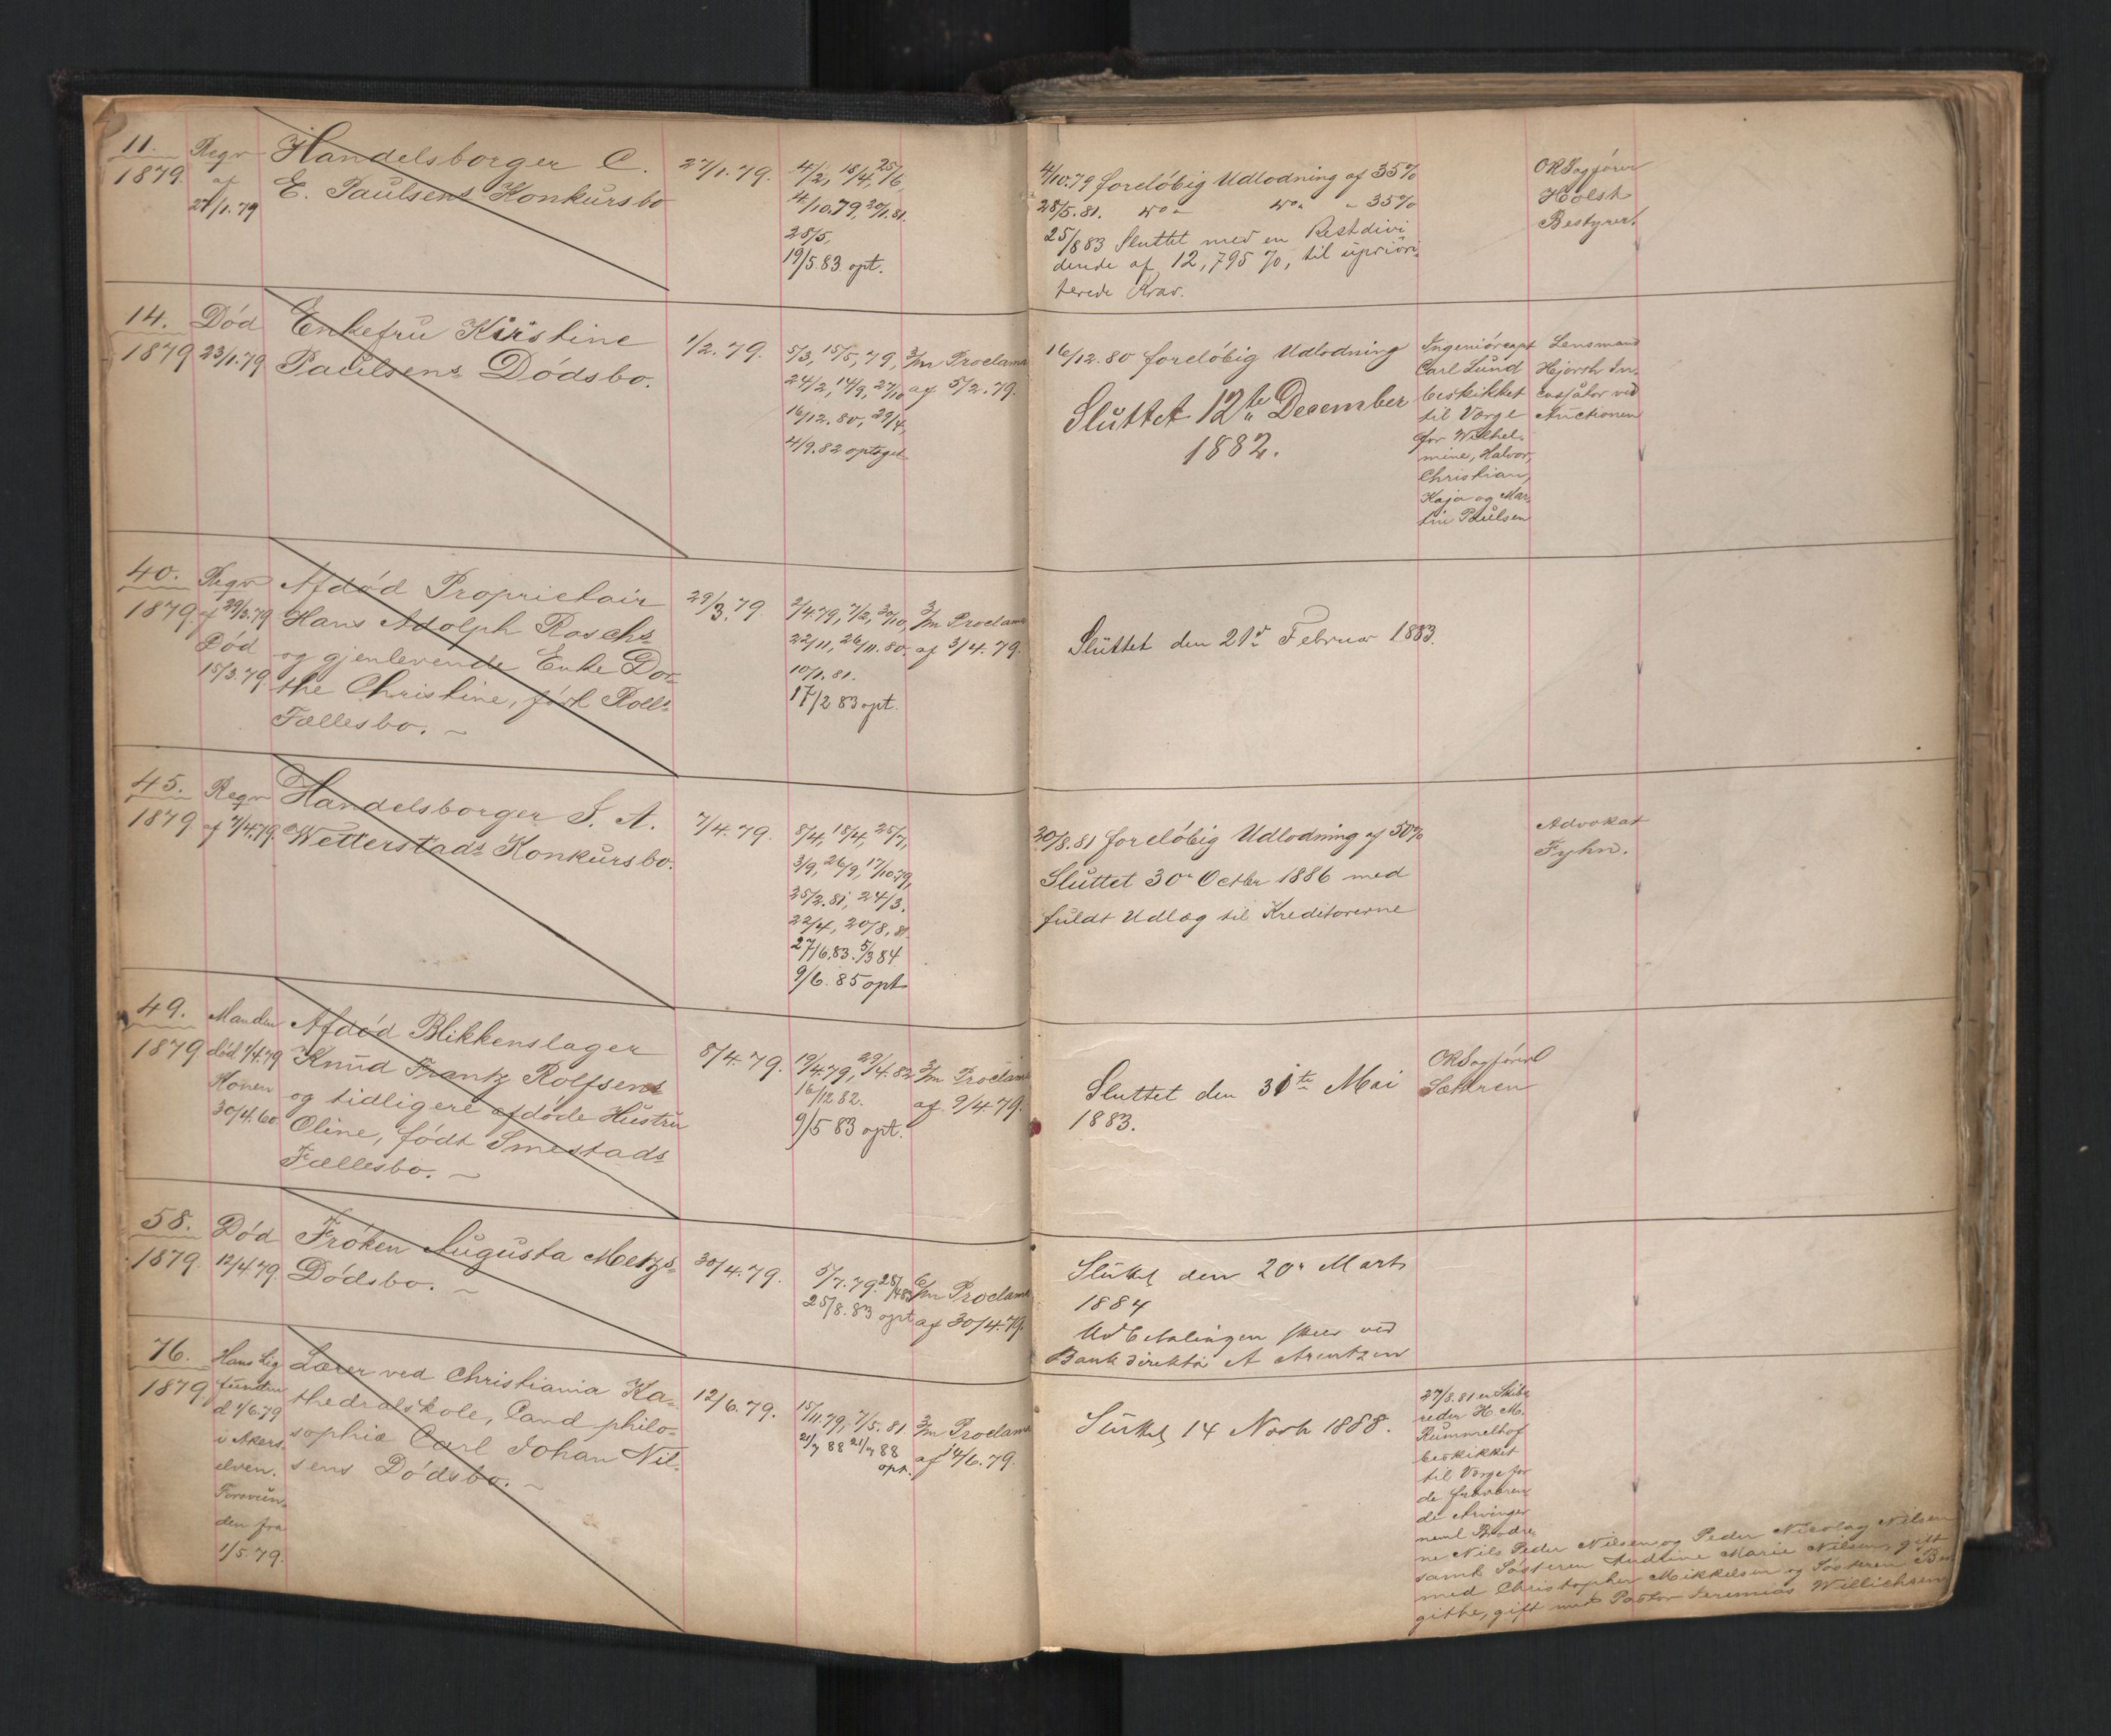 11.
1879.
Reqv
af
27/1.79
Handelsborger C.
E. Paulsens Konkursbo
27/1.79.
4/2, 18/4, 25/6,
4/10.79, 20/1.81.
28/5,
19/5.83. opt.
4/10.79 foreløbig Udlodning af 35%
28/5.81. do do - 35%
25/8 83 Sluttet med en Restdivi
dende af 12,795 %, til uprióri-
terede Krav.
ORSagfører
Holst
Bestyrer.
14.
1879
Død
23/1.79
Enkefru Kirstine
Paulsens Dødsbo.
1/2.79.
5/3, 15/5, 79,
24/2, 14/9, 27/10
16/12.80, 29/4,
4/9.82 optaget
3/m Proclama
af 5/2.79.
16/12.80 foreløbig Udlodning
Sluttet 12te December
1882.
Ingeniørcapt
Carl Lund
beskikket
til Værge
for Wilhel-
mine, Halvor,
Christian,
Kaja og Mar-
tin Paulsen
Lensmand
Hjorth In-
cassator ved
Auctionen
40.
1879.
Reqv
af 29/3.79
Død
15/3.79
Afdød Proprietair
Hans Adolph Roschs
og gjenlevende Enke Dor-
the Christine, født Rolls
Fællesbo.
29/3.79.
2/4.79, 7/2, 30/10,
22/11, 26/11.80.
10/1.81.
17/2 83 opt.
3/m Proclama
af 3/4.79.
Sluttet den 21de Februar 1883.
45.
1879
Reqv
af 7/4.79.
Handelsborger S. A.
Wetterstads Konkursbo.
7/4.79.
8/4, 18/4, 25/7,
3/9, 26/9, 17/10.79,
25/2.81, 24/3.
22/4, 20/8, 81.
27/6.83. 5/3 84
9/6.85 opt
20/8.81 foreløbig Udlodning af 50%
Sluttet 30. Octbr 1886 med
fuldt Udlæg til Kreditorerne
Advokat
Fyhn.
49.
1879
Manden
død 1/4.79
Konen
30/4.60
Afdød Blikkenslager
Knud Frantz Rolfsens
og tidligere afdøde Hustru
Oline, født Smestads
Fællesbo.
8/4.79.
19/4.79, 29/4.82
16/12 82.
9/5 83 opt.
3/m Proclama
af 9/4.79.
Sluttet den 31te Mai
1883.
ORSagfører
Sæthren
58.
1879.
Død
12/4.79.
Frøken Augusta Metzs
Dødsbo.
30/4.79.
5/7.79.
25/8.83 opt
6/m Proclama
af 30/4.79.
Sluttet den 20. Marts
1884
Udbetalingen skeer ved
Bankdirektø A Arentzen
76.
1879.
Hans Lig
funden
d 1/6.79
i Akers-
elven.
Forsvun-
den fra
1/5.79.
Lærer ved Christiania Ka-
thedralskole, Cand philo-
sophia Carl Johan Nil-
sens Dødsbo.
12/6.79.
15/11.79, 7/5.81.
21/7 88 21/7 88
opt.
3/m Proclama
af 14/6.79.
Sluttet 14 Novbr 1888.
27/8.81 er Skibs
reder H. M.
Rummelhof
beskikket
til Værge for
de fraværen
de Arvinger
neml Brødre
ne Nils Peder Nilsen og Peder Nicolay Nilsen
samt Søsteren Andrine Marie Nilsen, gift
med Christopher Mikkelsen og Søsteren Ber
githe, gift med Pastor Jeremias Willichsen